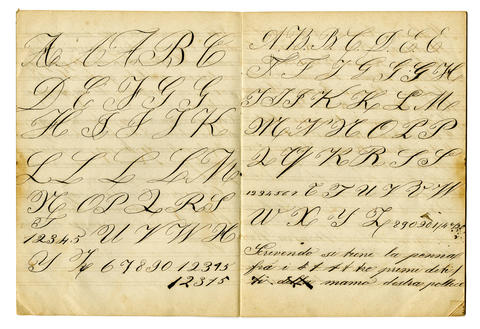 A A A B C
D E F G G
H I I J K
L L L L M
N O P Q R S
T
1 2 3 4 5 U V W X
Y Z 6 7 8 9 0 1 2 3 4 5
1 2 3 1 5
A B B C D E E
F F J G G G H
I I J K K L M
M N N O P P
Q K R S S
1 2 3 4 5 6 7 T U V W
W X Y Z 8 9 0
Scrivendo si tiene la penna
fra i tre primi diti
mano destra